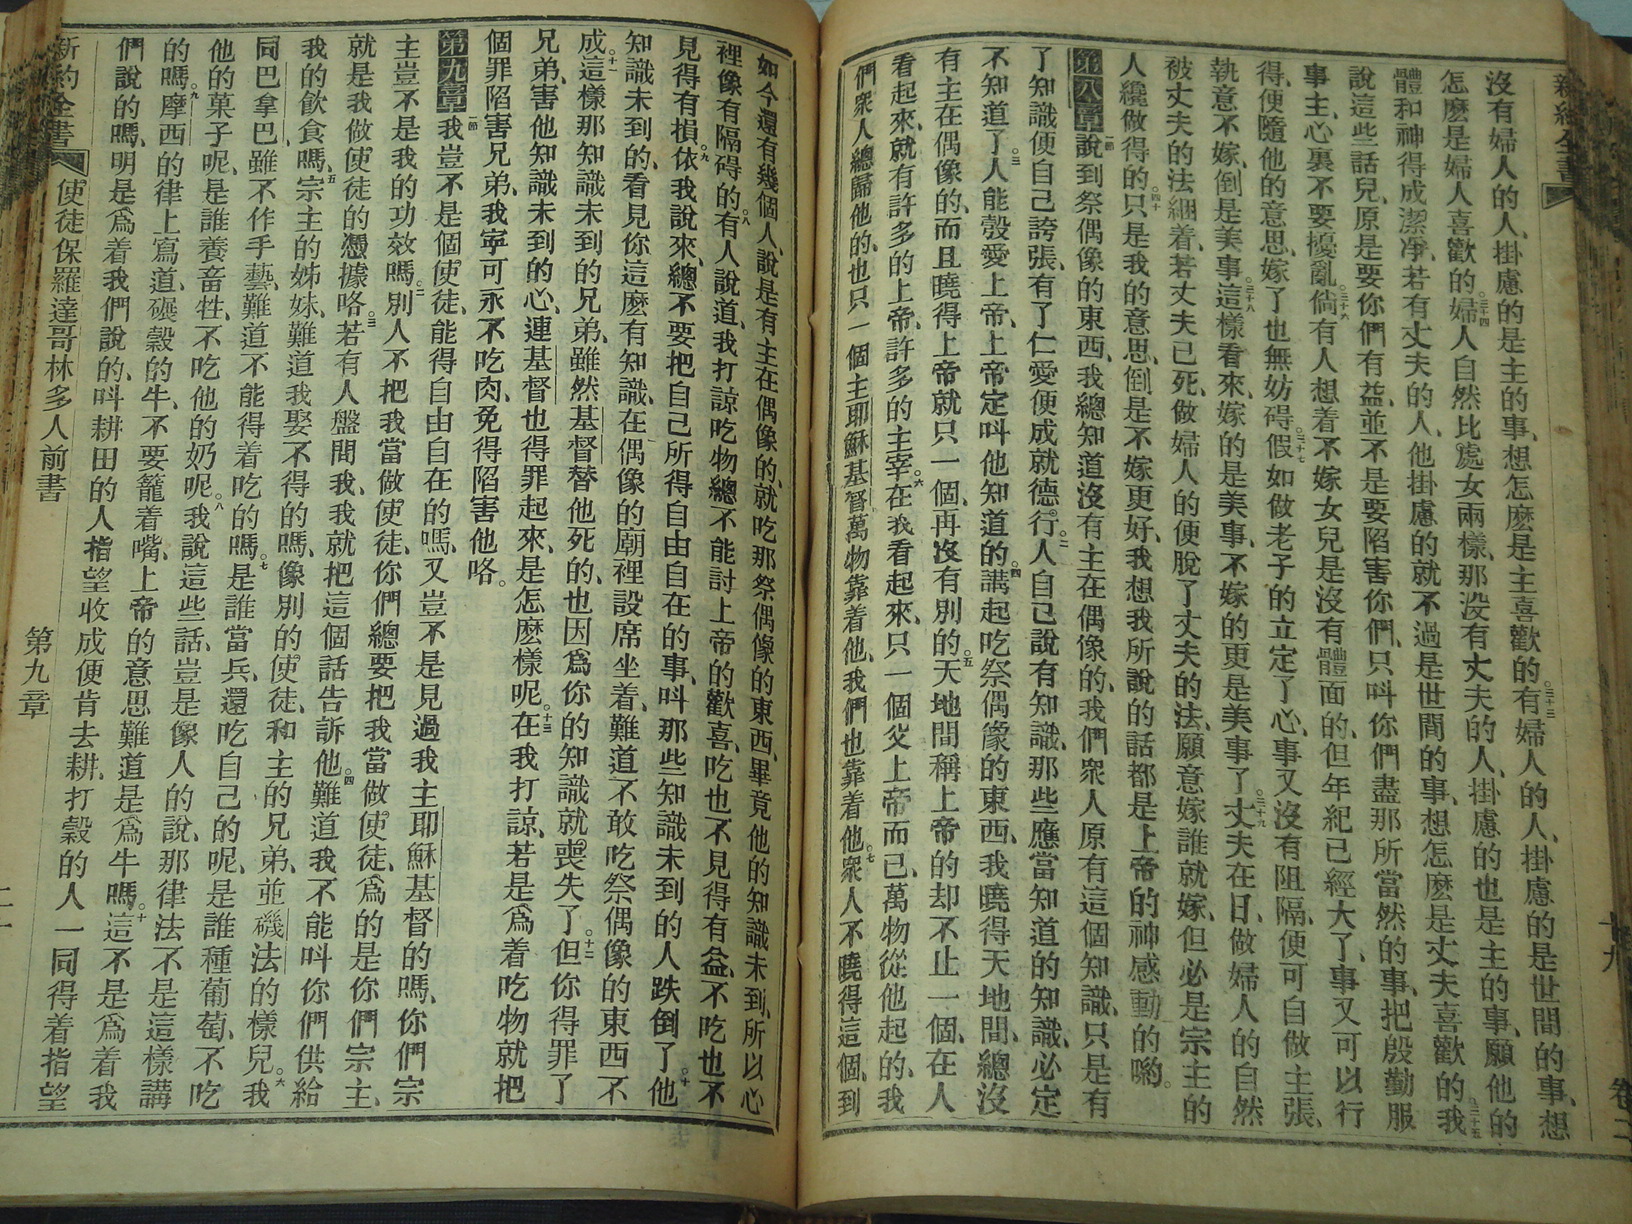 新約全書
沒有婦人的人、掛慮的是主的事、想怎麽是主喜歡的。三十三有婦人的人、掛慮的是世間的事、想
怎麽是婦人喜歡的。三十四婦人自然比處女兩樣、那沒有丈夫的人、掛慮的也是主的事、願他的
體和神得成潔淨、若有丈夫的人、他掛慮的就不過是世間的事、想怎麽是丈夫喜歡的。三十五我
說這些話兒、原是要你們有益、並不是要陷害你們、只呌你們盡那所當然的事、把殷勤服
事主、心裏不要擾亂。三十六倘有人想着不嫁女兒是沒有體面的、但年紀已經大了、事又可以行
得、便隨他的意思、嫁了也無妨碍。三十七假如做老子的立定了心、事又沒有阻隔、便可自做主張、
執意不嫁、倒是美事。三十八這樣看來、嫁的是美事、不嫁的更是美事了。三十九丈夫在日、做婦人的自然
被丈夫的法綑着、若丈夫已死、做婦人的便脫了丈夫的法、願意嫁誰就嫁、但必是宗主的
人纔做得的。四十只是我的意思、倒是不嫁更好、我想我所說的話都是上帝的神感動的喲。
第八章一節說到祭偶像的東西、我總知道沒有主在偶像的、我們衆人原有這個知識、只是有
了知識便自己誇張、有了仁愛便成就德行。二人自己說有知識、那些應當知道的知識、必定
不知道了。三人能彀愛上帝、上帝定呌他知道的。四講起吃祭偶像的東西、我曉得天地間、總沒
有主在偶像的、而且曉得上帝就只一個、再沒有別的。五天地間稱上帝的却不止一個、在人
看起來、就有許多的上帝、許多的主宰。六在我看起來、只一個父上帝而已、萬物從他起的、我
們衆人總歸他的、也只一個主耶穌基督、萬物靠着他、我們也靠着他。七衆人不曉得這個、到
卷二
十九
如今還有幾個人、說是有主在偶像的、就吃那祭偶像的東西、畢竟他的知識未到、所以心
裡像有隔碍的。八有人說道、我打諒吃物總不能討上帝的歡喜、吃也不見得有益、不吃也不
見得有損。九依我說來、總不要把自己所得自由自在的事、呌那些知識未到的人跌倒了。十他
知識未到的、看見你這麽有知識、在偶像的廟裡設席坐着、難道不敢吃祭偶像的東西不
成。十一這樣那知識未到的兄弟、雖然基督替他死的、也因爲你的知識就喪失了。十二但你得罪了
兄弟、害他知識未到的心、連基督也得罪起來、是怎麽樣呢。十三在我打諒、若是爲着吃物就把
個罪陷害兄弟、我寜可永不吃肉、免得陷害他咯。
第九章一節我豈不是個使徒、能得自由自在的嗎、又豈不是見過我主耶穌基督的嗎、你們宗
主豈不是我的功效嗎。二別人不把我當做使徒、你們總要把我當做使徒、爲的是你們宗主、
就是我做使徒的憑據咯。三若有人盤問我、我就把這個話告訴他。四難道我不能呌你們供給
我的飲食嗎。五宗主的姊妹、難道我娶不得的嗎、像別的使徒、和主的兄弟、並磯法的樣兒。六我
同巴拿巴、雖不作手藝、難道不能得着吃的嗎。七是誰當兵、還吃自己的呢、是誰種葡萄、不吃
他的菓子呢、是誰養畜牲、不吃他的奶呢。八我說這些話、豈是像人的說、那律法不是這樣講
的嗎。九摩西的律上寫道、碾穀的牛、不要籠着嘴、上帝的意思難道是爲牛嗎。十這不是爲着我
們說的嗎、明是爲着我們說的、呌耕田的人指望收成便肯去耕、打穀的人一同得着指望
新約全書 使徒保羅達哥林多人前書 第九章 二十